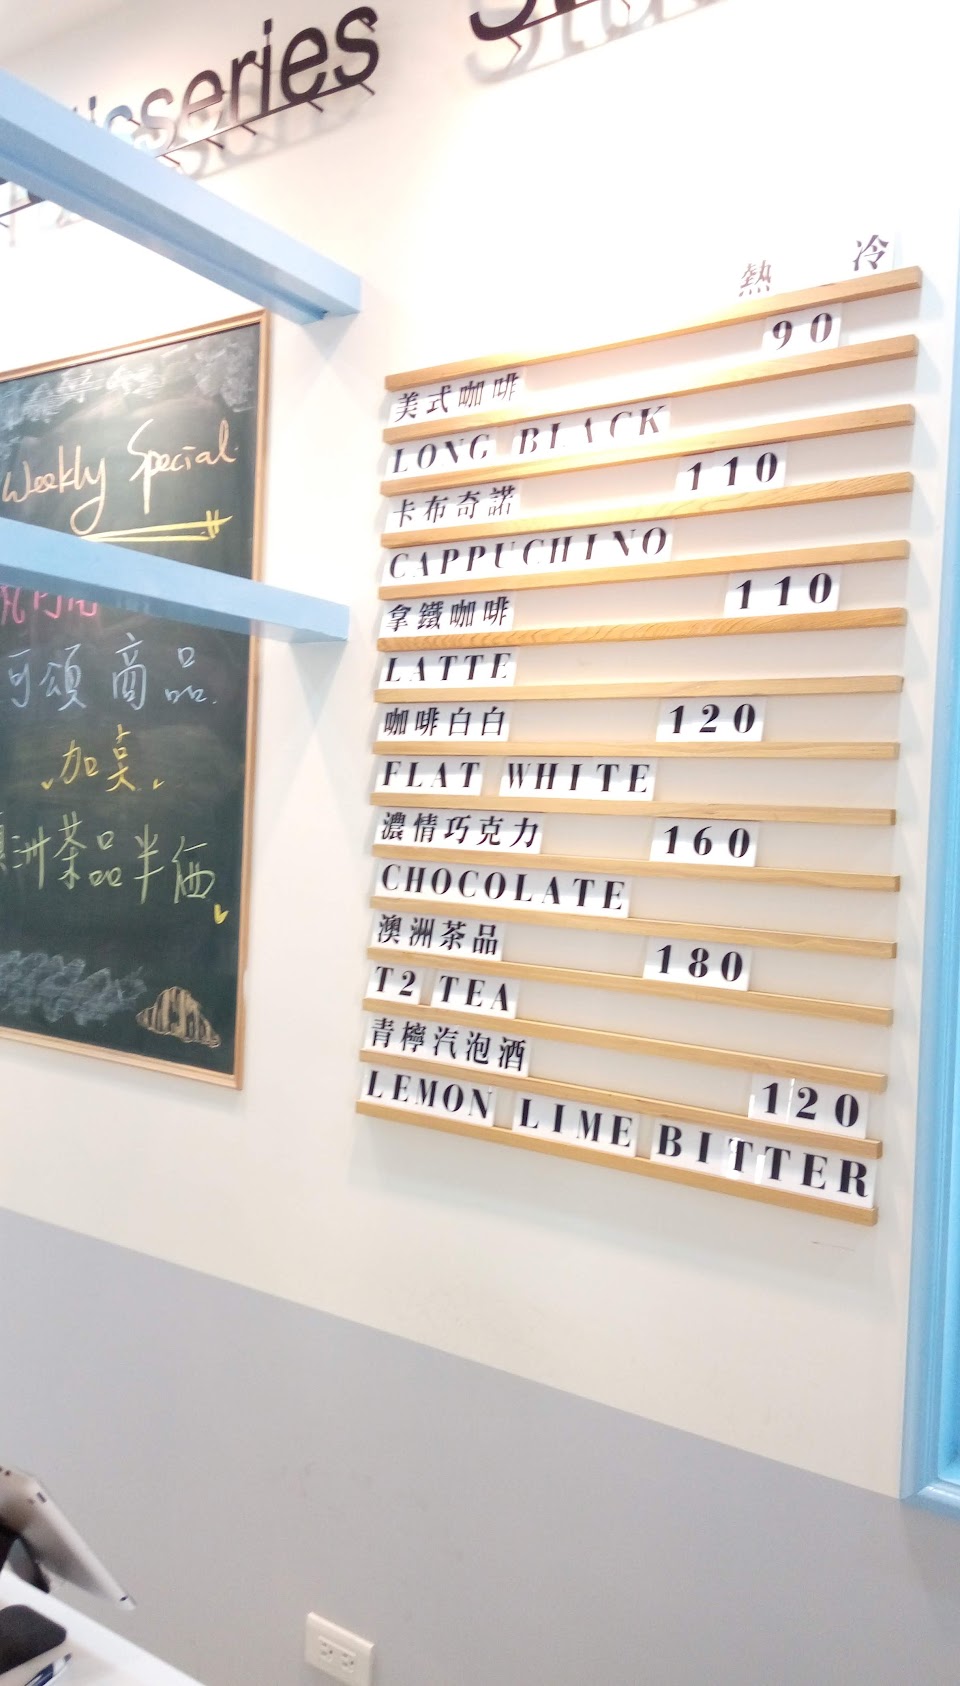 熱 冷
90
美式咖啡
LONG BLACK
110
卡布奇諾
CAPPUCHINO
110
拿鐵咖啡
LATTE
咖啡白白 120
FLAT WHITE
濃情巧克力 160
CHOCOLATE
澳洲茶品 180
T2 TEA
青檸汽泡酒
120
LEMON LIME BITTER
Weekly Special
可頌商品
加桌
洲茶品半価